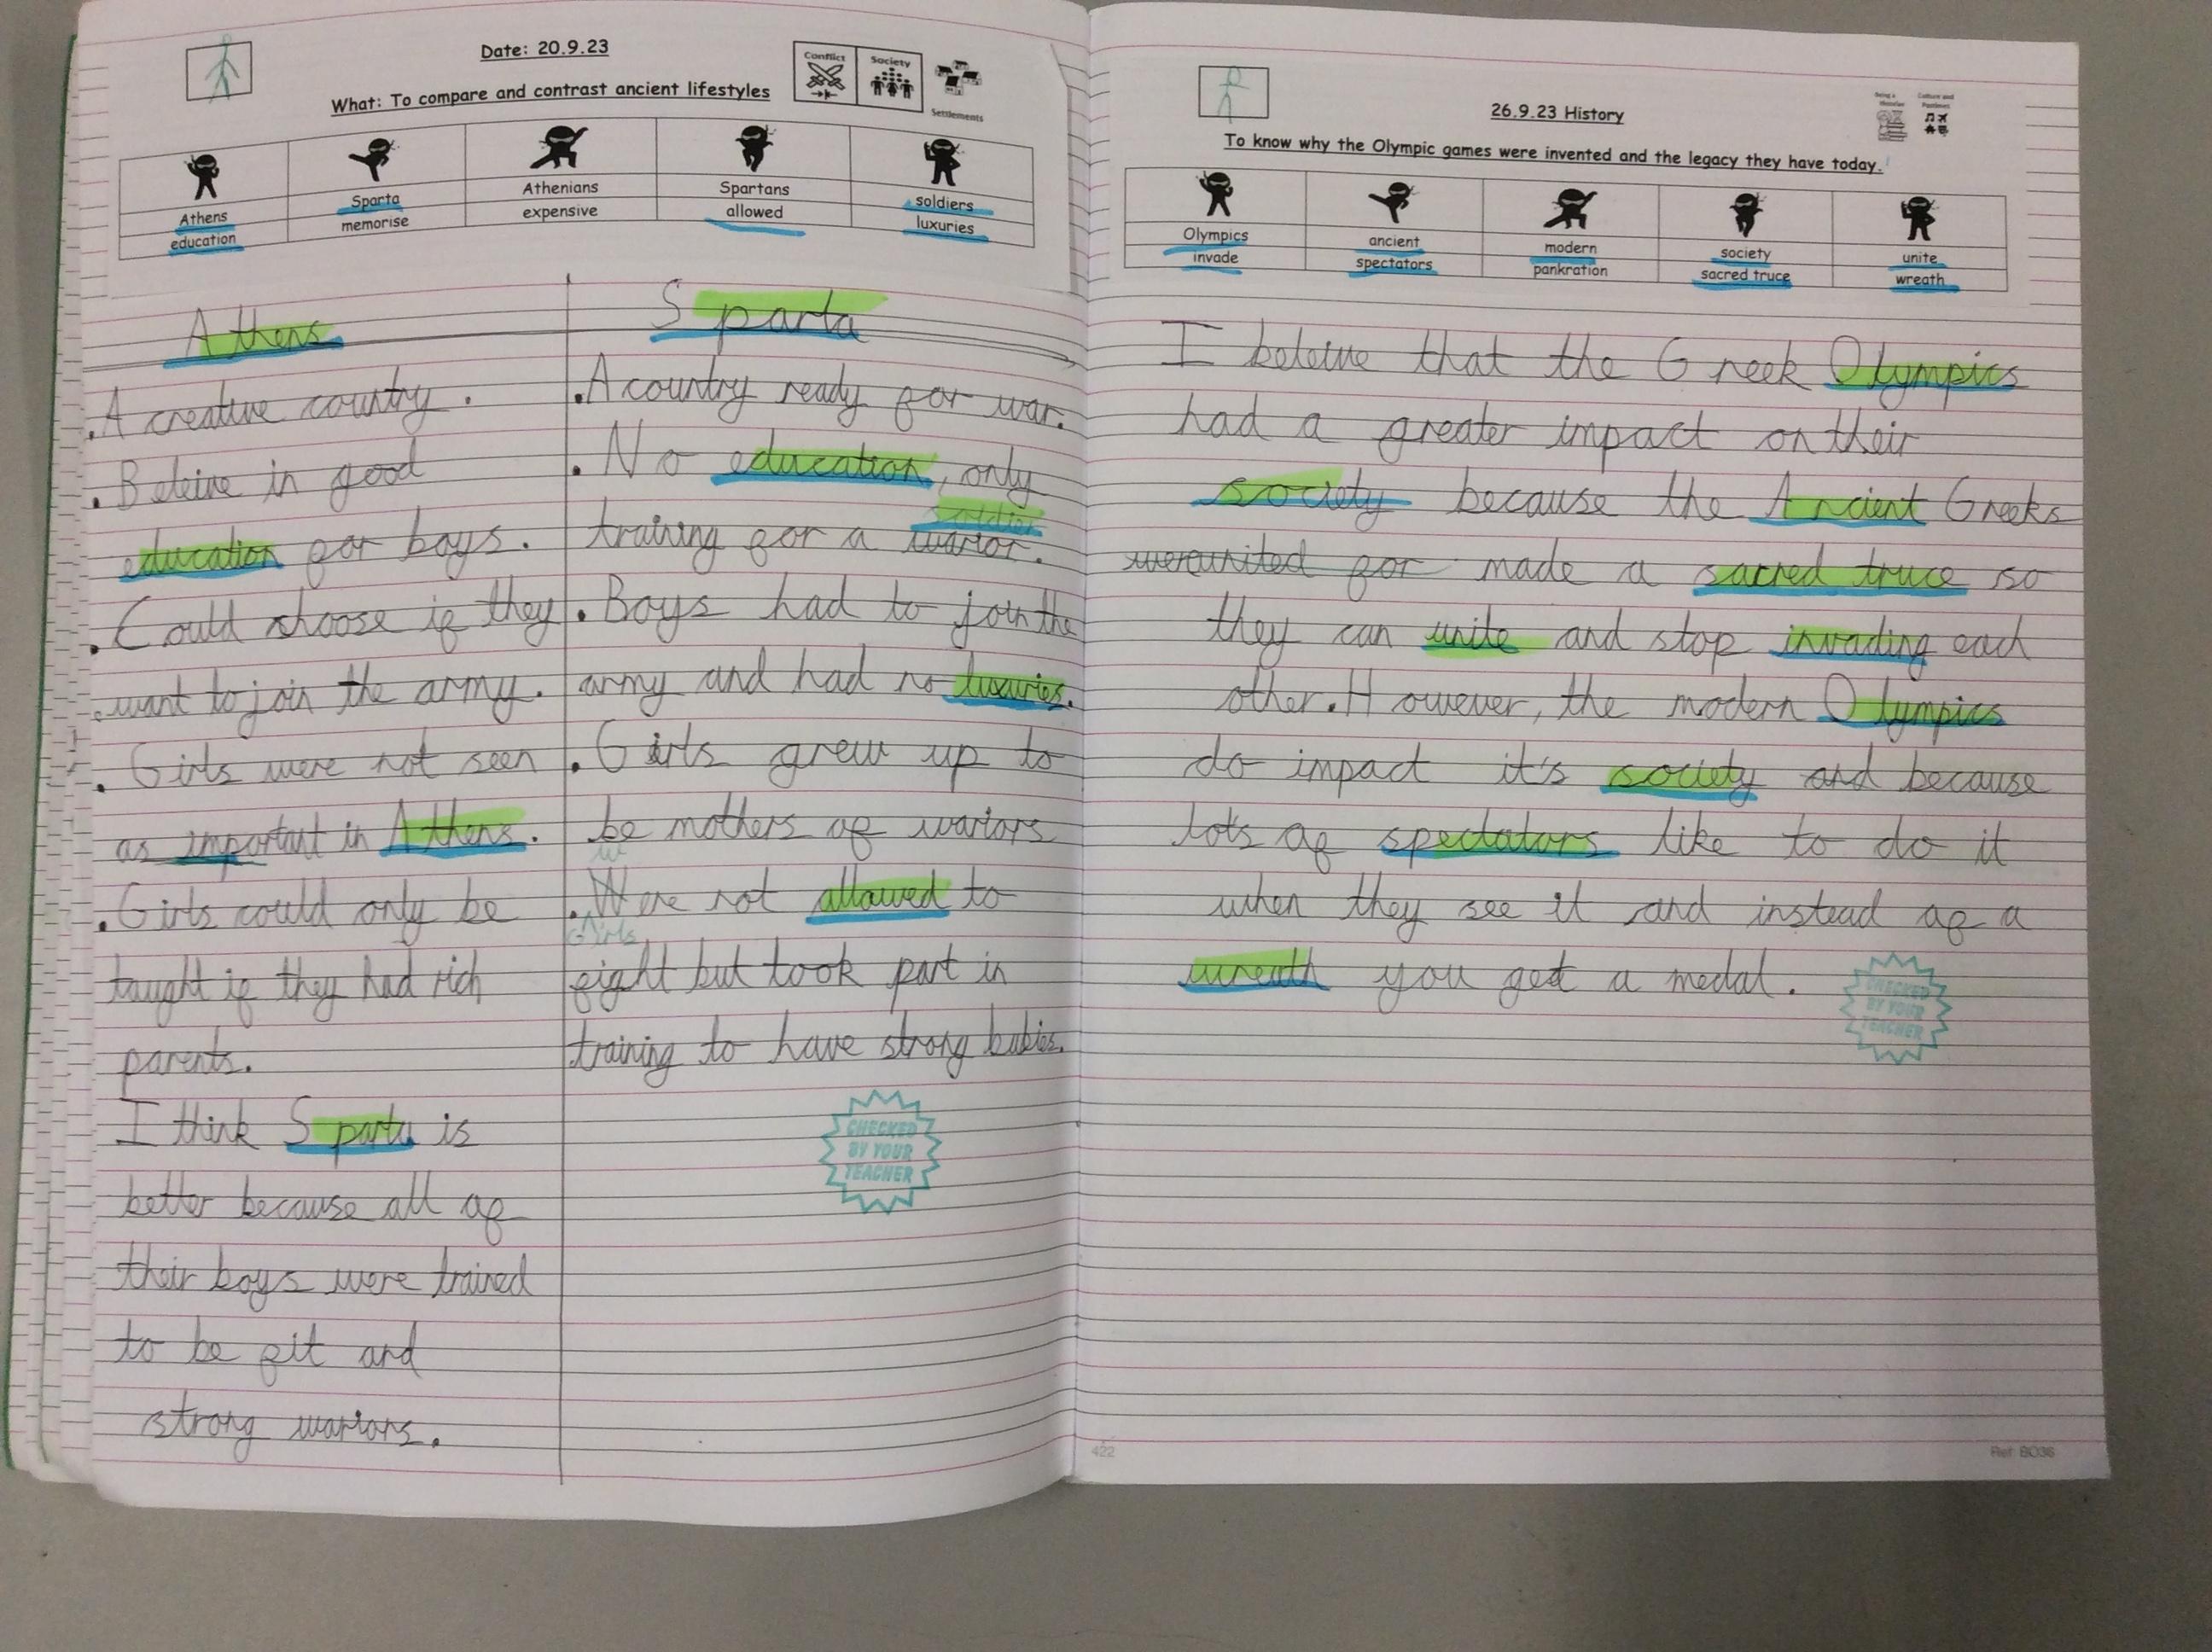 Date: 20.9.23
What: To compare and contrast ancient lifestyles
Conflict
Society
Settlements
Athens
Sparta
Athenians
Spartans
soldiers
education
memorise
expensive
allowed
luxuries
Athens
.A creative country.
.Beleive in good
education for boys.
.Could choose if they
want to join the army.
.Girls were not seen
as important in Athens.
.Girls could only be
taught if they had rich
parents.
I think Sparta is
better because all of
their boys were trained
to be fit and
strong wariors.
Sparta
.A country ready for war.
.No education, only
soldier
training for a warior.
.Boys had to join the
army and had no luxuries.
.Girls grew up to
be mothers of wariors
w
.Were not allowed to
Girls
fight but took part in
training to have strong babies.
CHECKED
BY YOUR
TEACHER
26.9.23 History
Being a
Historian
Culture and
Pastimes
To know why the Olympic games were invented and the legacy they have today.
Olympics
ancient
modern
society
unite
invade
spectators
pankration
sacred truce
wreath
I beleive that the Greek Olympics
had a greater impact on their
society because the Ancient Greeks
were united for made a sacred truce so
they can unite and stop invading each
other. However, the modern Olympics
do impact it's society and because
lots of spectators like to do it
when they see it and instead of a
wreath you get a medal.
CHECKED
BY YOUR
TEACHER
422
Ref BO36